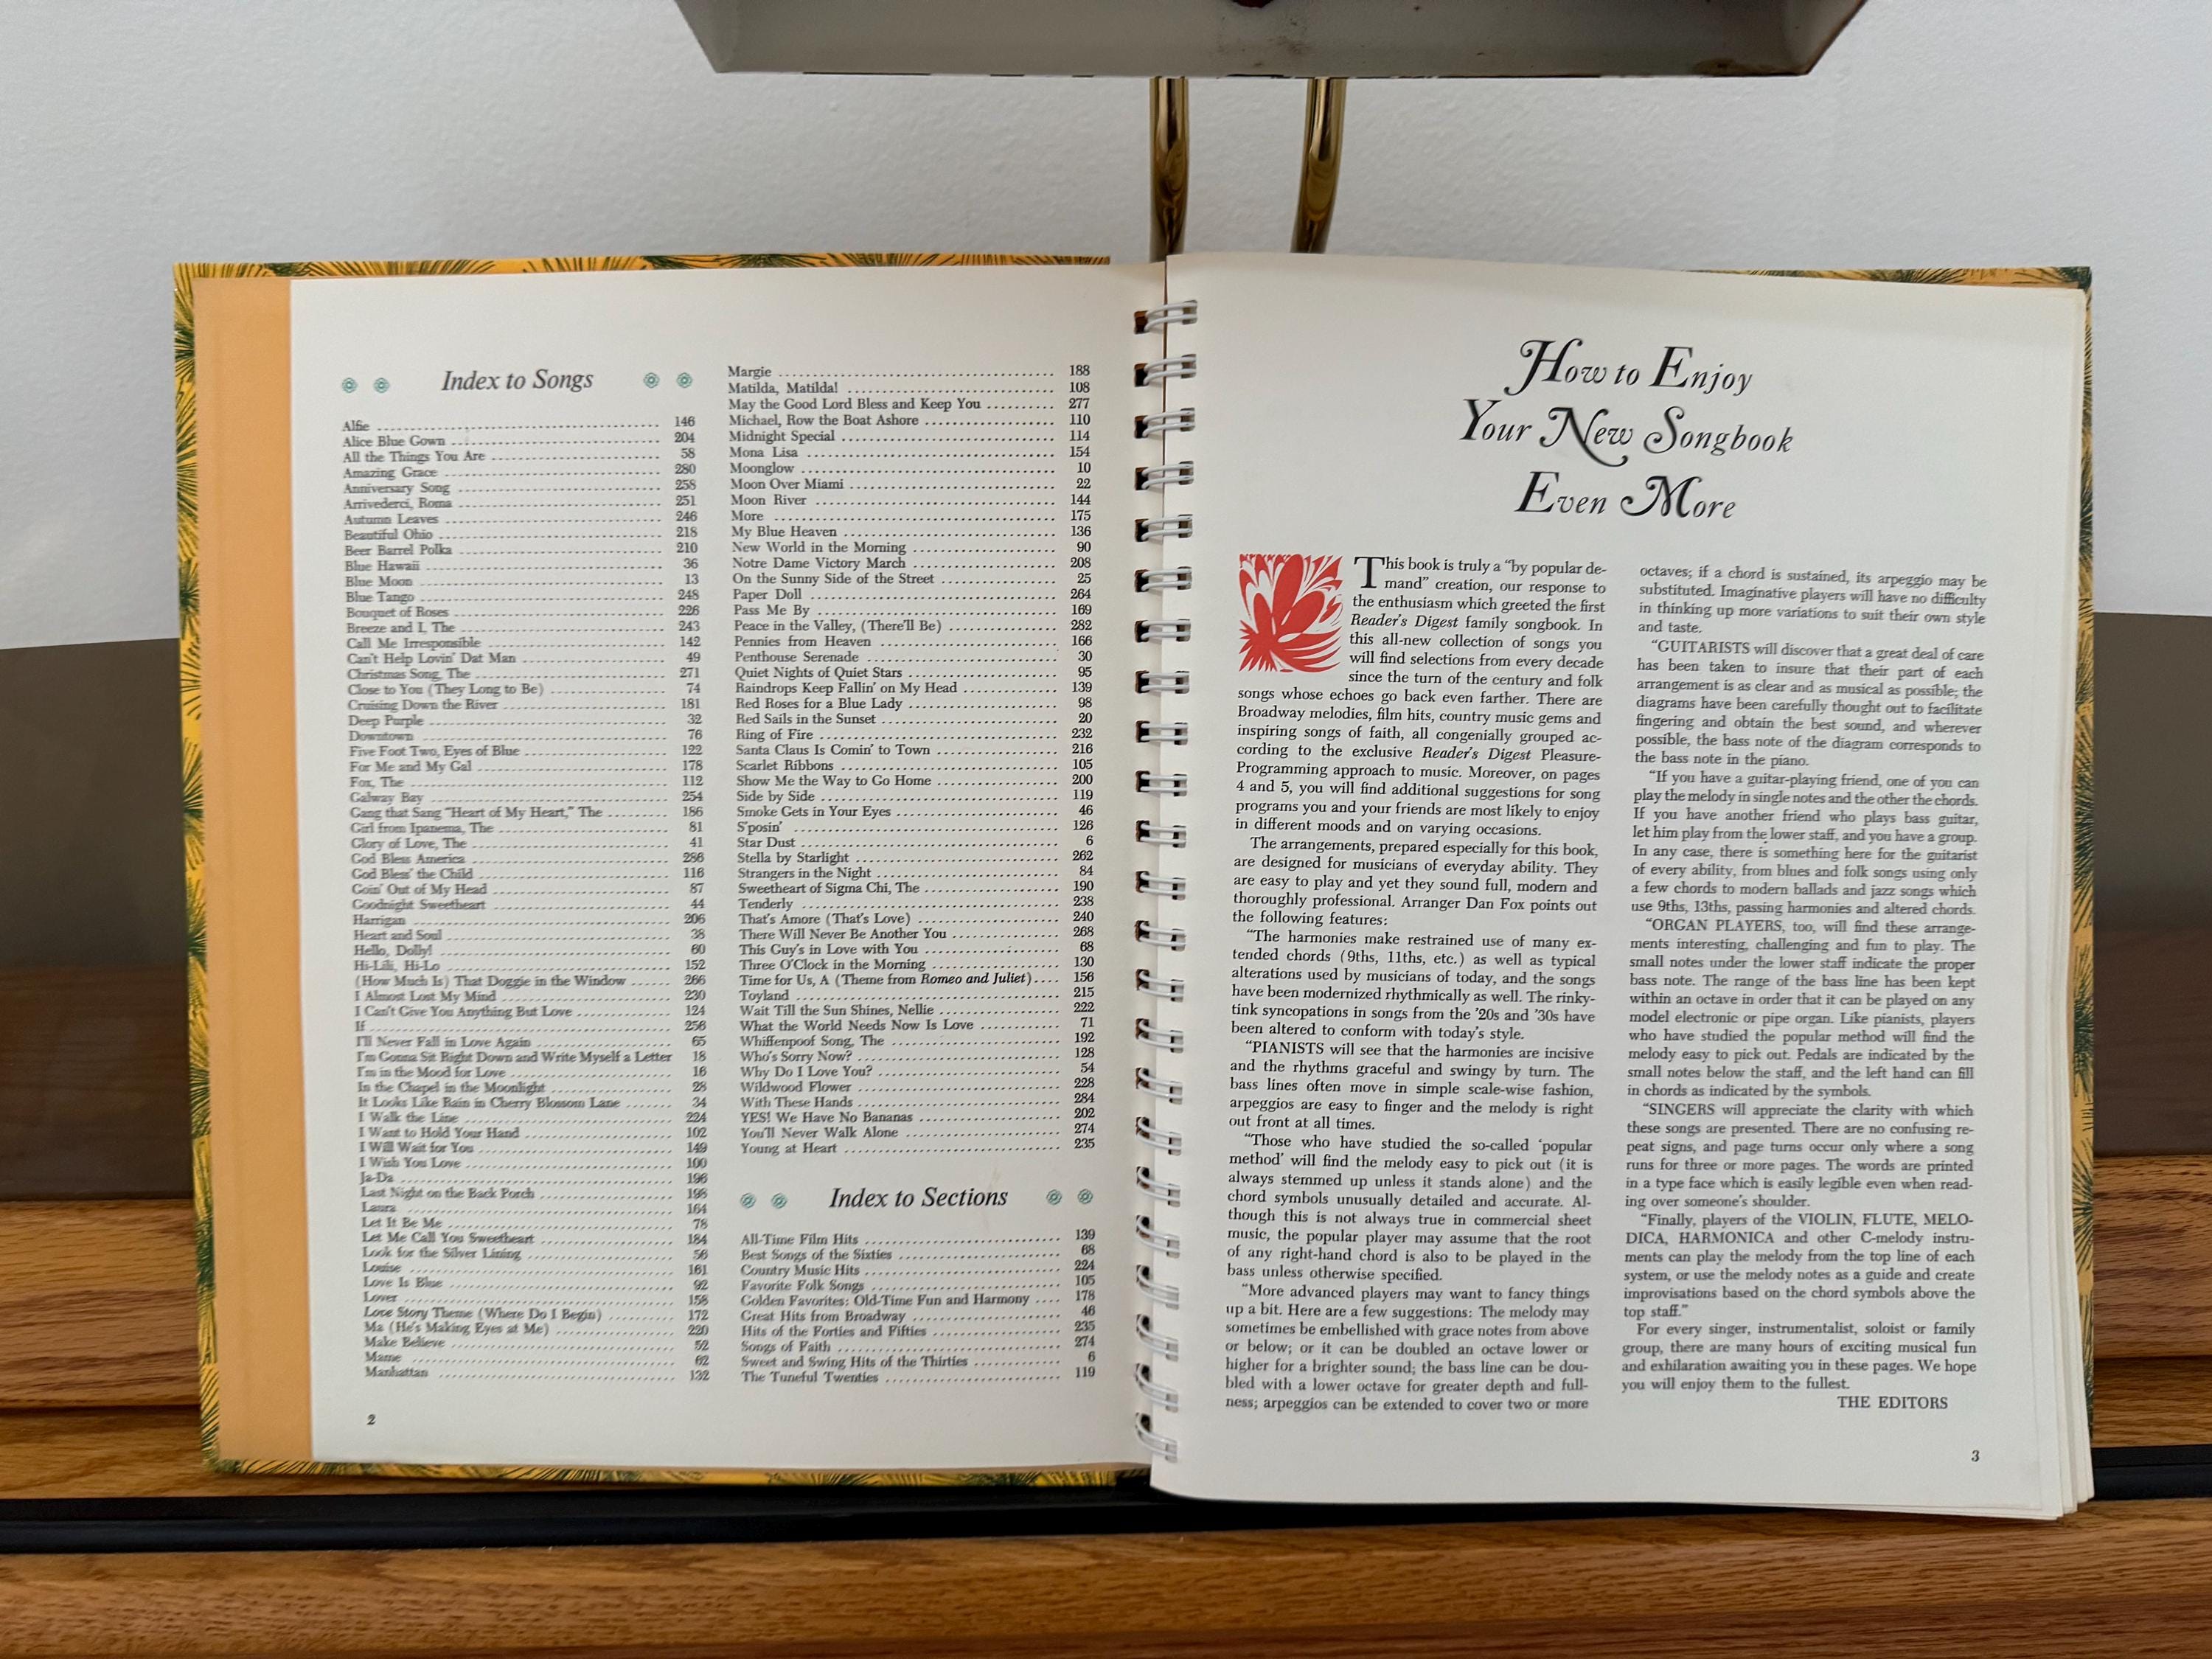 Index to Songs
Alfie 146
Alice Blue Gown 204
All the Things You Are 58
Amazing Grace 280
Anniversary Song 258
Arrivederci, Roma 251
Autumn Leaves 246
Beautiful Ohio 218
Beer Barrel Polka 210
Blue Hawaii 36
Blue Moon 13
Blue Tango 248
Bouquet of Roses 226
Breeze and I, The 243
Call Me Irresponsible 142
Can't Help Lovin' Dat Man 49
Christmas Song, The 271
Close to You (They Long to Be) 74
Cruising Down the River 181
Deep Purple 32
Downtown 76
Five Foot Two, Eyes of Blue 122
For Me and My Gal 178
Fox, The 112
Galway Bay 254
Gang that Sang "Heart of My Heart," The 186
Girl from Ipanema, The 81
Glory of Love, The 41
God Bless America 286
God Bless' the Child 116
Goin' Out of My Head 87
Goodnight Sweetheart 44
Harrigan 206
Heart and Soul 38
Hello, Dolly! 60
Hi-Lili, Hi-Lo 152
(How Much Is) That Doggie in the Window 266
I Almost Lost My Mind 230
I Can't Give You Anything But Love 124
If 256
I'll Never Fall in Love Again 65
I'm Gonna Sit Right Down and Write Myself a Letter 18
I'm in the Mood for Love 16
In the Chapel in the Moonlight 28
It Looks Like Rain in Cherry Blossom Lane 34
I Walk the Line 224
I Want to Hold Your Hand 102
I Will Wait for You 149
I Wish You Love 100
Ja-Da 196
Last Night on the Back Porch 198
Laura 164
Let It Be Me 78
Let Me Call You Sweetheart 184
Look for the Silver Lining 56
Louise 161
Love Is Blue 92
Lover 158
Love Story Theme (Where Do I Begin) 172
Ma (He's Making Eyes at Me) 220
Make Believe 52
Mame 62
Manhattan 132
2
Margie 188
Matilda, Matilda! 108
May the Good Lord Bless and Keep You 277
Michael, Row the Boat Ashore 110
Midnight Special 114
Mona Lisa 154
Moonglow 10
Moon Over Miami 22
Moon River 144
More 175
My Blue Heaven 136
New World in the Morning 90
Notre Dame Victory March 208
On the Sunny Side of the Street 25
Paper Doll 264
Pass Me By 169
Peace in the Valley, (There'll Be) 282
Pennies from Heaven 166
Penthouse Serenade 30
Quiet Nights of Quiet Stars 95
Raindrops Keep Fallin' on My Head 139
Red Roses for a Blue Lady 98
Red Sails in the Sunset 20
Ring of Fire 232
Santa Claus Is Comin' to Town 216
Scarlet Ribbons 105
Show Me the Way to Go Home 200
Side by Side 119
Smoke Gets in Your Eyes 46
S'posin' 126
Star Dust 6
Stella by Starlight 262
Strangers in the Night 84
Sweetheart of Sigma Chi, The 190
Tenderly 238
That's Amore (That's Love) 240
There Will Never Be Another You 268
This Guy's in Love with You 68
Three O'Clock in the Morning 130
Time for Us, A (Theme from Romeo and Juliet) 156
Toyland 215
Wait Till the Sun Shines, Nellie 222
What the World Needs Now Is Love 71
Whiffenpoof Song, The 192
Who's Sorry Now? 128
Why Do I Love You? 54
Wildwood Flower 228
With These Hands 284
YES! We Have No Bananas 202
You'll Never Walk Alone 274
Young at Heart 235
Index to Sections
All-Time Film Hits 139
Best Songs of the Sixties 68
Country Music Hits 224
Favorite Folk Songs 105
Golden Favorites: Old-Time Fun and Harmony 178
Great Hits from Broadway 46
Hits of the Forties and Fifties 235
Songs of Faith 274
Sweet and Swing Hits of the Thirties 6
The Tuneful Twenties 119
How to Enjoy
Your New Songbook
Even More
This book is truly a "by popular de-
mand" creation, our response to
the enthusiasm which greeted the first
Reader's Digest family songbook. In
this all-new collection of songs you
will find selections from every decade
since the turn of the century and folk
songs whose echoes go back even farther. There are
Broadway melodies, film hits, country music gems and
inspiring songs of faith, all congenially grouped ac-
cording to the exclusive Reader's Digest Pleasure-
Programming approach to music. Moreover, on pages
4 and 5, you will find additional suggestions for song
programs you and your friends are most likely to enjoy
in different moods and on varying occasions.
The arrangements, prepared especially for this book,
are designed for musicians of everyday ability. They
are easy to play and yet they sound full, modern and
thoroughly professional. Arranger Dan Fox points out
the following features:
"The harmonies make restrained use of many ex-
tended chords (9ths, 11ths, etc.) as well as typical
alterations used by musicians of today, and the songs
have been modernized rhythmically as well. The rinky-
tink syncopations in songs from the '20s and '30s have
been altered to conform with today's style.
"PIANISTS will see that the harmonies are incisive
and the rhythms graceful and swingy by turn. The
bass lines often move in simple scale-wise fashion,
arpeggios are easy to finger and the melody is right
out front at all times.
"Those who have studied the so-called 'popular
method' will find the melody easy to pick out (it is
always stemmed up unless it stands alone) and the
chord symbols unusually detailed and accurate. Al-
though this is not always true in commercial sheet
music, the popular player may assume that the root
of any right-hand chord is also to be played in the
bass unless otherwise specified.
"More advanced players may want to fancy things
up a bit. Here are a few suggestions: The melody may
sometimes be embellished with grace notes from above
or below; or it can be doubled an octave lower or
higher for a brighter sound; the bass line can be dou-
bled with a lower octave for greater depth and full-
ness; arpeggios can be extended to cover two or more
octaves; if a chord is sustained, its arpeggio may be
substituted. Imaginative players will have no difficulty
in thinking up more variations to suit their own style
and taste.
"GUITARISTS will discover that a great deal of care
has been taken to insure that their part of each
arrangement is as clear and as musical as possible; the
diagrams have been carefully thought out to facilitate
fingering and obtain the best sound, and wherever
possible, the bass note of the diagram corresponds to
the bass note in the piano.
"If you have a guitar-playing friend, one of you can
play the melody in single notes and the other the chords.
If you have another friend who plays bass guitar,
let him play from the lower staff, and you have a group.
In any case, there is something here for the guitarist
of every ability, from blues and folk songs using only
a few chords to modern ballads and jazz songs which
use 9ths, 13ths, passing harmonies and altered chords.
"ORGAN PLAYERS, too, will find these arrange-
ments interesting, challenging and fun to play. The
small notes under the lower staff indicate the proper
bass note. The range of the bass line has been kept
within an octave in order that it can be played on any
model electronic or pipe organ. Like pianists, players
who have studied the popular method will find the
melody easy to pick out. Pedals are indicated by the
small notes below the staff, and the left hand can fill
in chords as indicated by the symbols.
"SINGERS will appreciate the clarity with which
these songs are presented. There are no confusing re-
peat signs, and page turns occur only where a song
runs for three or more pages. The words are printed
in a type face which is easily legible even when read-
ing over someone's shoulder.
"Finally, players of the VIOLIN, FLUTE, MELO-
DICA, HARMONICA and other C-melody instru-
ments can play the melody from the top line of each
system, or use the melody notes as a guide and create
improvisations based on the chord symbols above the
top staff."
For every singer, instrumentalist, soloist or family
group, there are many hours of exciting musical fun
and exhilaration awaiting you in these pages. We hope
you will enjoy them to the fullest.
THE EDITORS
3